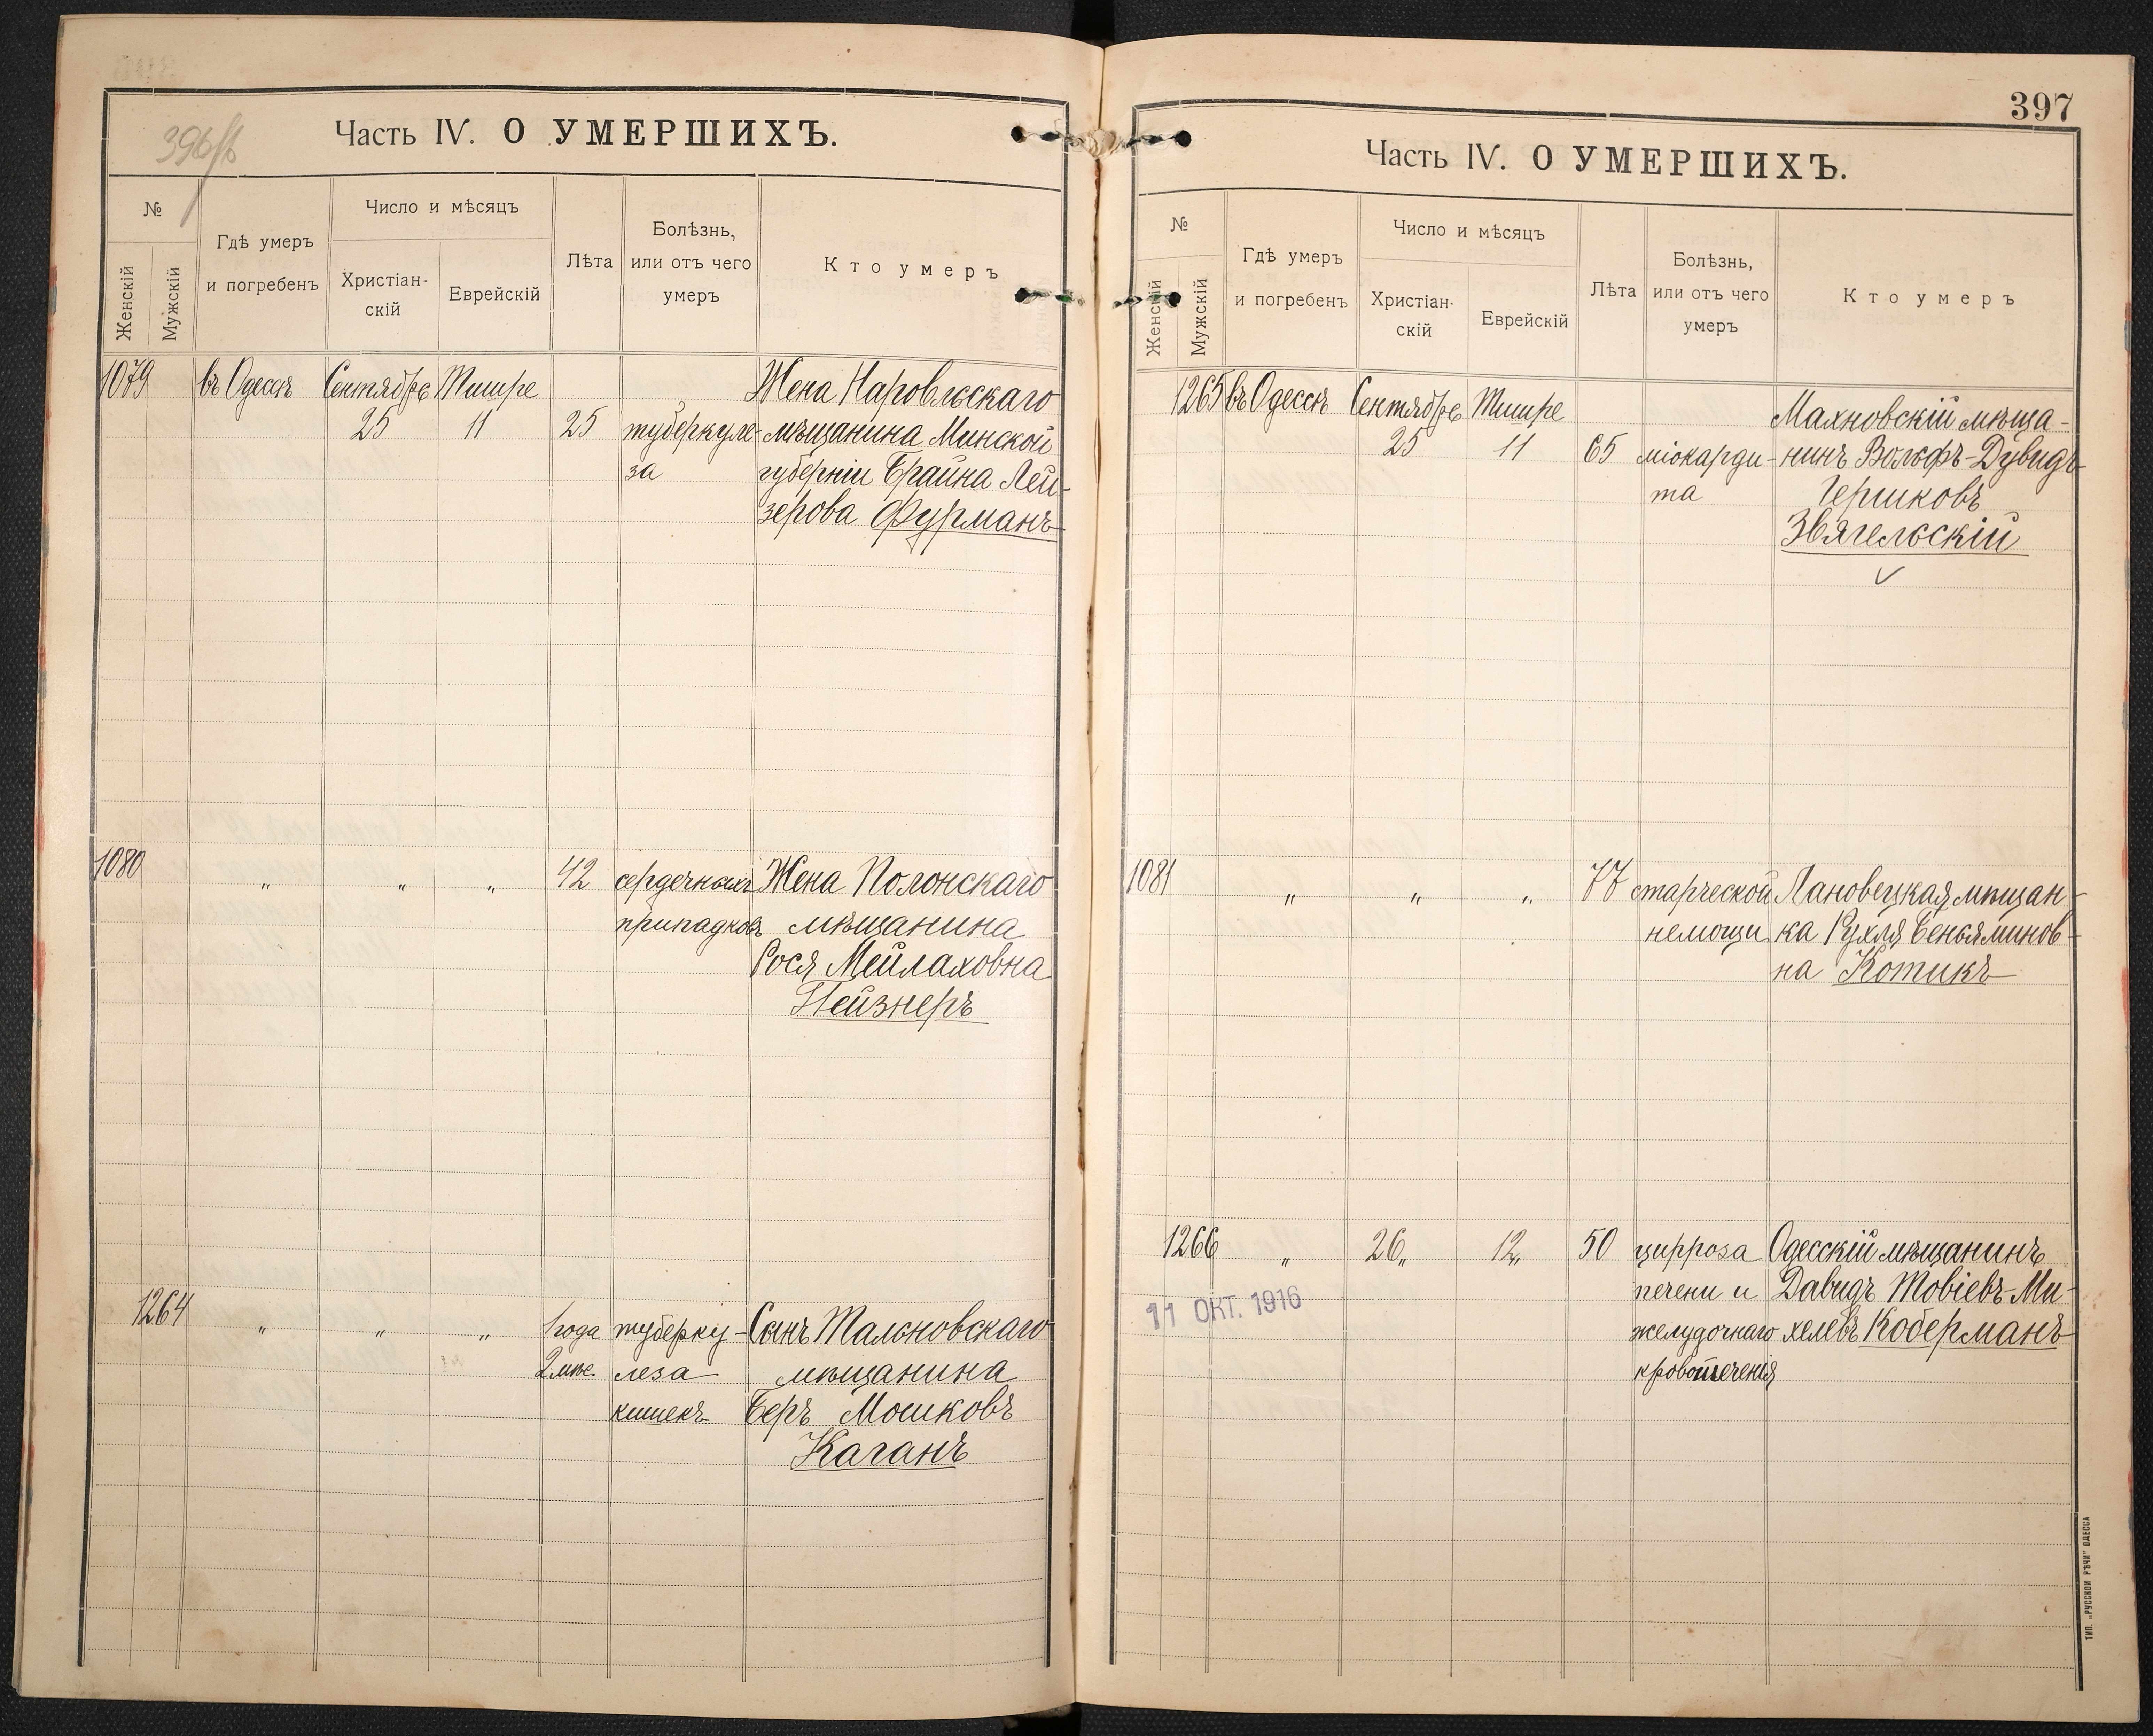 396об
Часть IV. О УМЕРШИХЪ.
№
Женскій
Мужскій
Гдѣ умеръ
и погребенъ
Число и мѣсяцъ
Христіан-
скій
Еврейскій
Лѣта
Болѣзнь,
или отъ чего
умеръ
Кто умеръ
1079 въ Одессѣ Сентябрь Тишре Жена Наровльскаго
25 11 25 туберкуле- мѣщанина Минской
за губерніи Брайна Лей-
зерова Фурманъ
1080 " " " 42 сердечныхъ Жена Полонскаго
припадковъ мѣщанина
Рося Мейлаховна
Нейзнеръ
1264 " " " 1 года туберку- Сынъ Тальновскаго
2 мѣс. леза мѣщанина
кишекъ Беръ Мошковъ
Каганъ
397
Часть IV. О УМЕРШИХЪ.
№
Женскій
Мужскій
Гдѣ умеръ
и погребенъ
Число и мѣсяцъ
Христіан-
скій
Еврейскій
Лѣта
Болѣзнь,
или отъ чего
умеръ
Кто умеръ
1265 въ Одессѣ Сентябрь Тишре Махновскій мѣща-
25 11 65 міокарди- нинъ Вольфъ-Дувидъ
та Гершковъ
Звягельскій
1081 " " " 77 старческой Лановецкая мѣщан-
немощи ка Рухля Беньяминов-
на Котикъ
1266 " 26 " 12 " 50 цирроза Одесскій мѣщанинъ
печени и Давидъ Товіевъ-Ми-
11 ОКТ. 1916
желудочнаго хелевъ Коберманъ
кровотеченія
ТИП. „РУССКОЙ РѢЧИ“ ОДЕССА